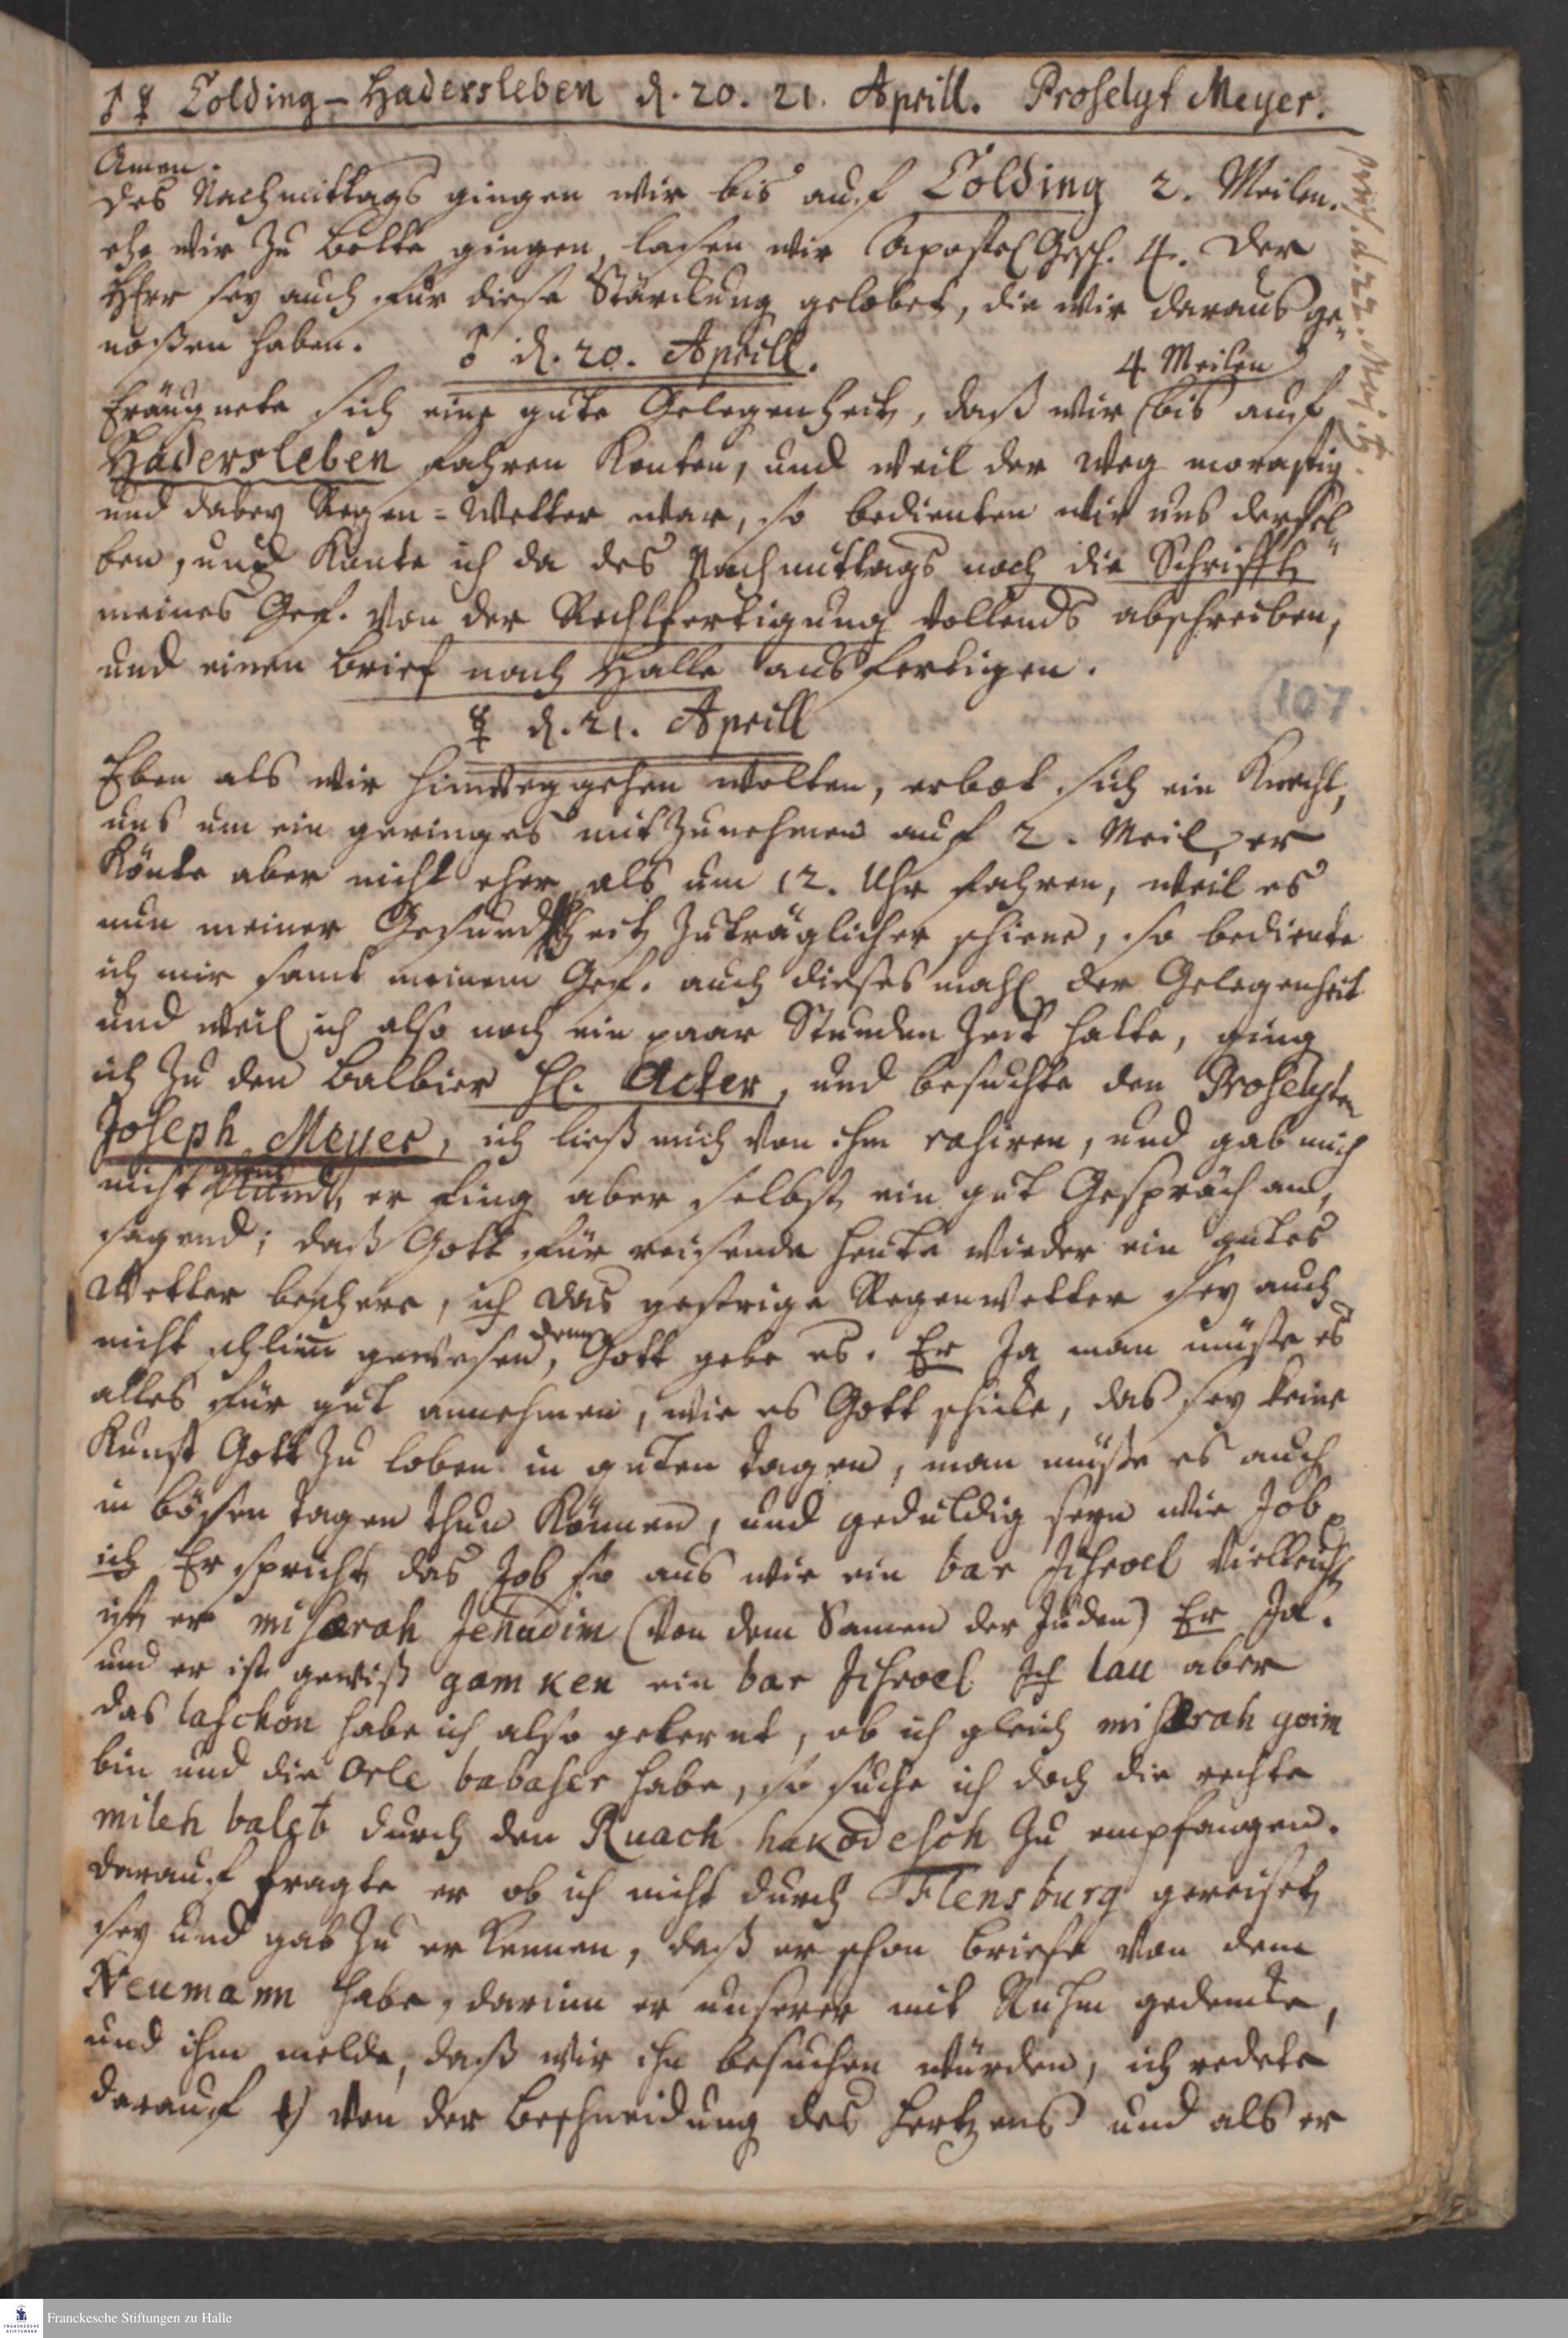 ♂ ☿ Colding - Hadersleben d. 20. 21. Aprill. Proselyt Meyer.
Amen.
Des Nachmittags gingen wir bis auf Colding 2. Meilen.
ehe wir zu bette gingen, lasen wir Apostel Gesch. 4. Der
HErr sey auch für diese Stärckung gelobet, die wir daraus ge„
noßen haben.
♂ d. 20. Aprill.
4 Meilen
Eräugnete sich eine gute Gelegenheit, daß wir bis auf
Hadersleben fahren konten, und weil der Weg morastig
und dabey Regen=Wetter war, so bedienten wir uns dersel„
ben, und konte ich da des Nachmittags noch die Schrifft
meines Gef. von der Rechtfertigung vollends abschreiben,
und einen brief nach Halle ausfertigen.
(107.
☿ d. 21. Aprill
Eben als wir hinweggehen wolten, erbot sich ein Knecht,
uns um ein geringes mitzunehmen auf 2. Meil, er
könte aber nicht eher als um 12. Uhr fahren, weil es
nun meiner Gesundheit zuträglicher schiene, so bediente
ich mir samt meinem Gef. auch dieses mahl der Gelegenheit
und weil ich also noch ein paar Stunden Zeit hatte, ging
ich zu den Balbier H. Acker, und besuchte den Proselyten
Joseph Meyer, ich ließ mich von ihm rasiren, und gab mich
nicht er fing aber selbst ein gut Gespräch an,
sagend; daß Gott für reisende heute wieder ein gutes
Wetter beschere, ich das gestrige Regenwetter sey auch
nicht schlimm gewesen, denn Gott gebe es. Er Ja man müste es
alles für gut annehmen, wie es Gott schicke, das sey keine
Kunst Gott zu loben in guten tagen, man müße es auch
in bösen tagen thun können, und geduldig seyn wie Job,
ich Er spricht das Job so aus wie ein bar Jisroel vielleicht
ist er misærah Jehudim (von dem Samen der Jüden) Er Ja.
und er ist gewiß gam ken ein bar Jisroel Ich lau aber
das laschon habe ich also gelernt, ob ich gleich misærah goim
bin und die Orle babaser habe, so suche ich doch die rechte
mileh baleb durch den Ruach hakodesch zu empfangen.
darauf fragte er ob ich nicht durch Flensburg gereiset
sey und gab zu erkennen, daß er schon briefe von dem
Neumann habe, darinn er unserer mit Ruhm gedencke,
und ihm melde, daß wir ihn besuchen würden, ich redete
darauf 1) von der beschneidung des hertzens und als er
Franckesche Stiftungen zu Halle